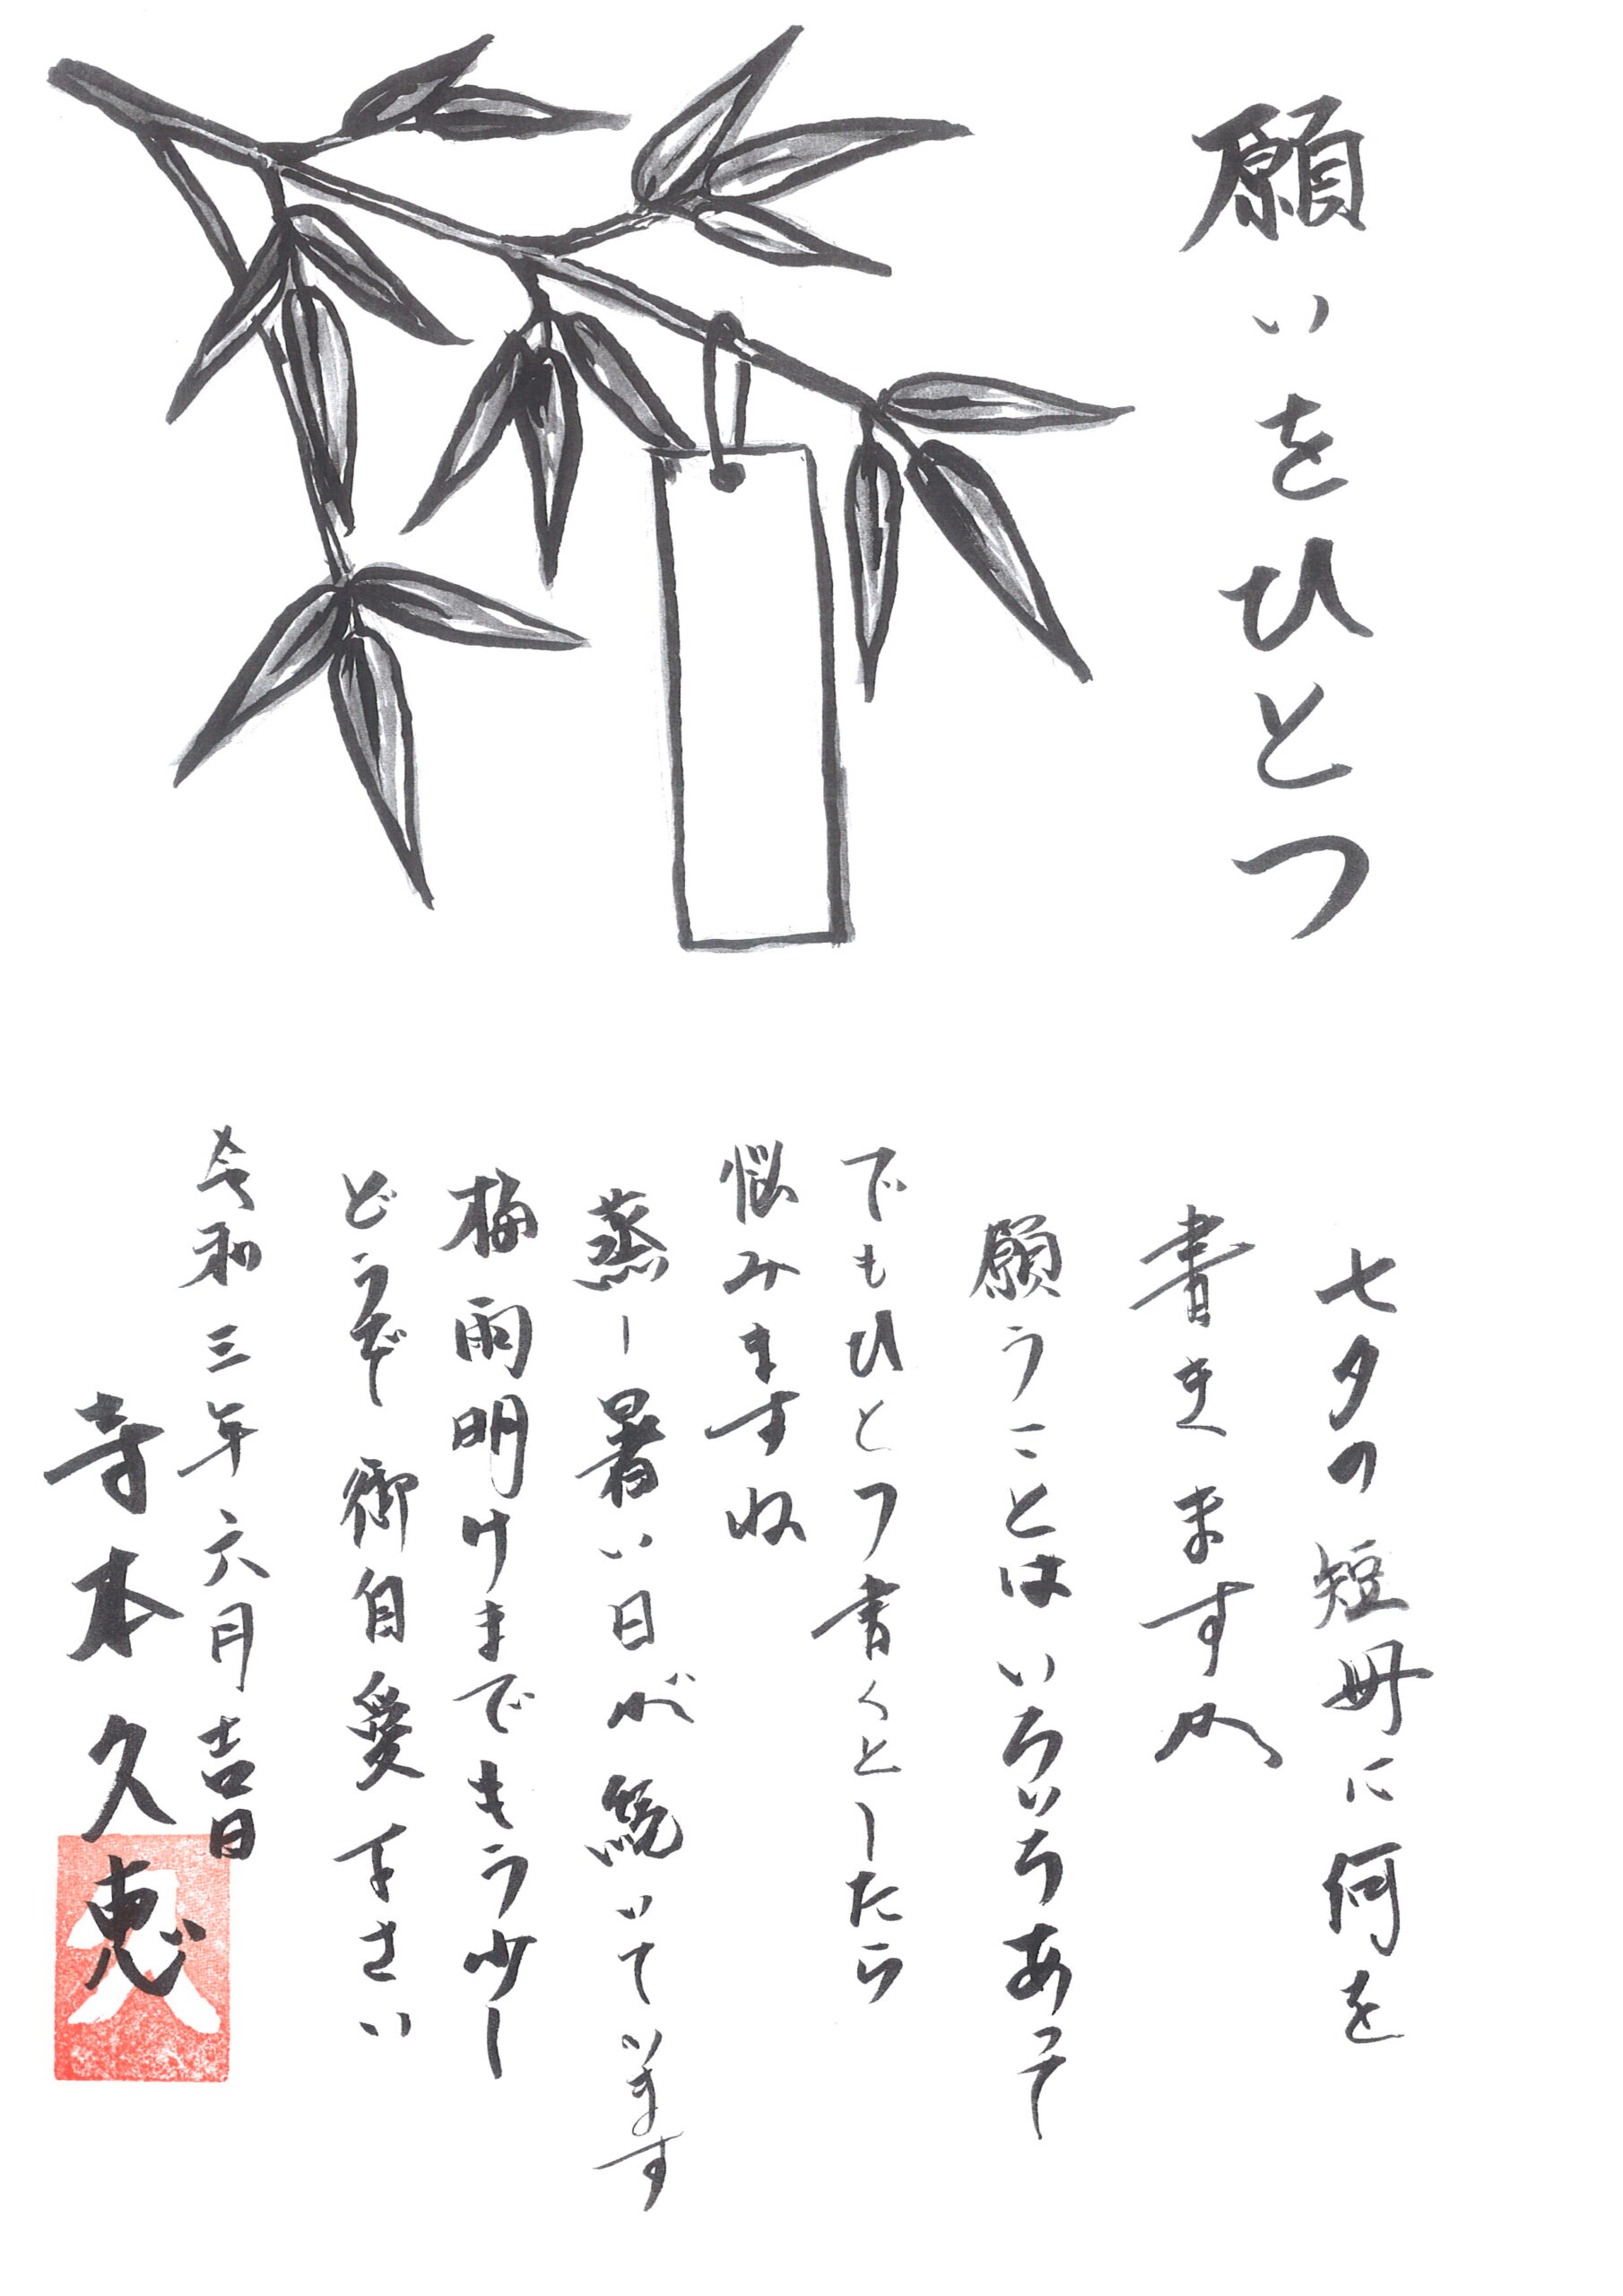 願いをひとつ
七夕の短冊に何を
書きますか
願うことはいろいろあって
でもひとつ書くとしたら
悩みますね
蒸し暑い日が続いています
梅雨明けまでもう少し
どうぞ御自愛下さい
令和三年六月吉日
寺本久恵
久